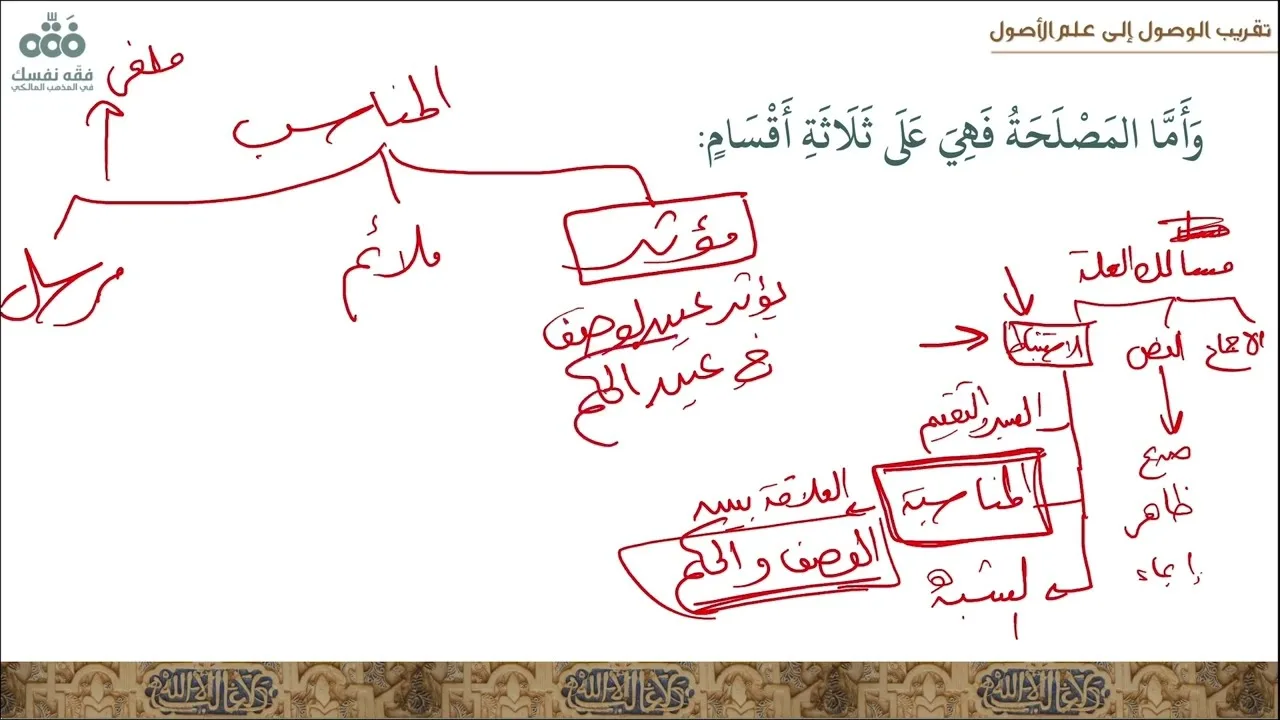 تقريب الوصول إلى علم الأصول
فقه نفسك
في المذهب المالكي
وَأَمَّا المَصْلَحَةُ فَهِيَ عَلَى ثَلَاثَةِ أَقْسَامٍ:
المناسب
ملغى
مؤثر
ملائم
مرسل
يؤثر عين الوصف
في عين الحكم
مسالك العلة
الإجماع
النص
الاستنباط
صريح
ظاهر
إيماء
السبر والتقسيم
المناسبة
الشبه
العلاقة بين
الوصف والحكم